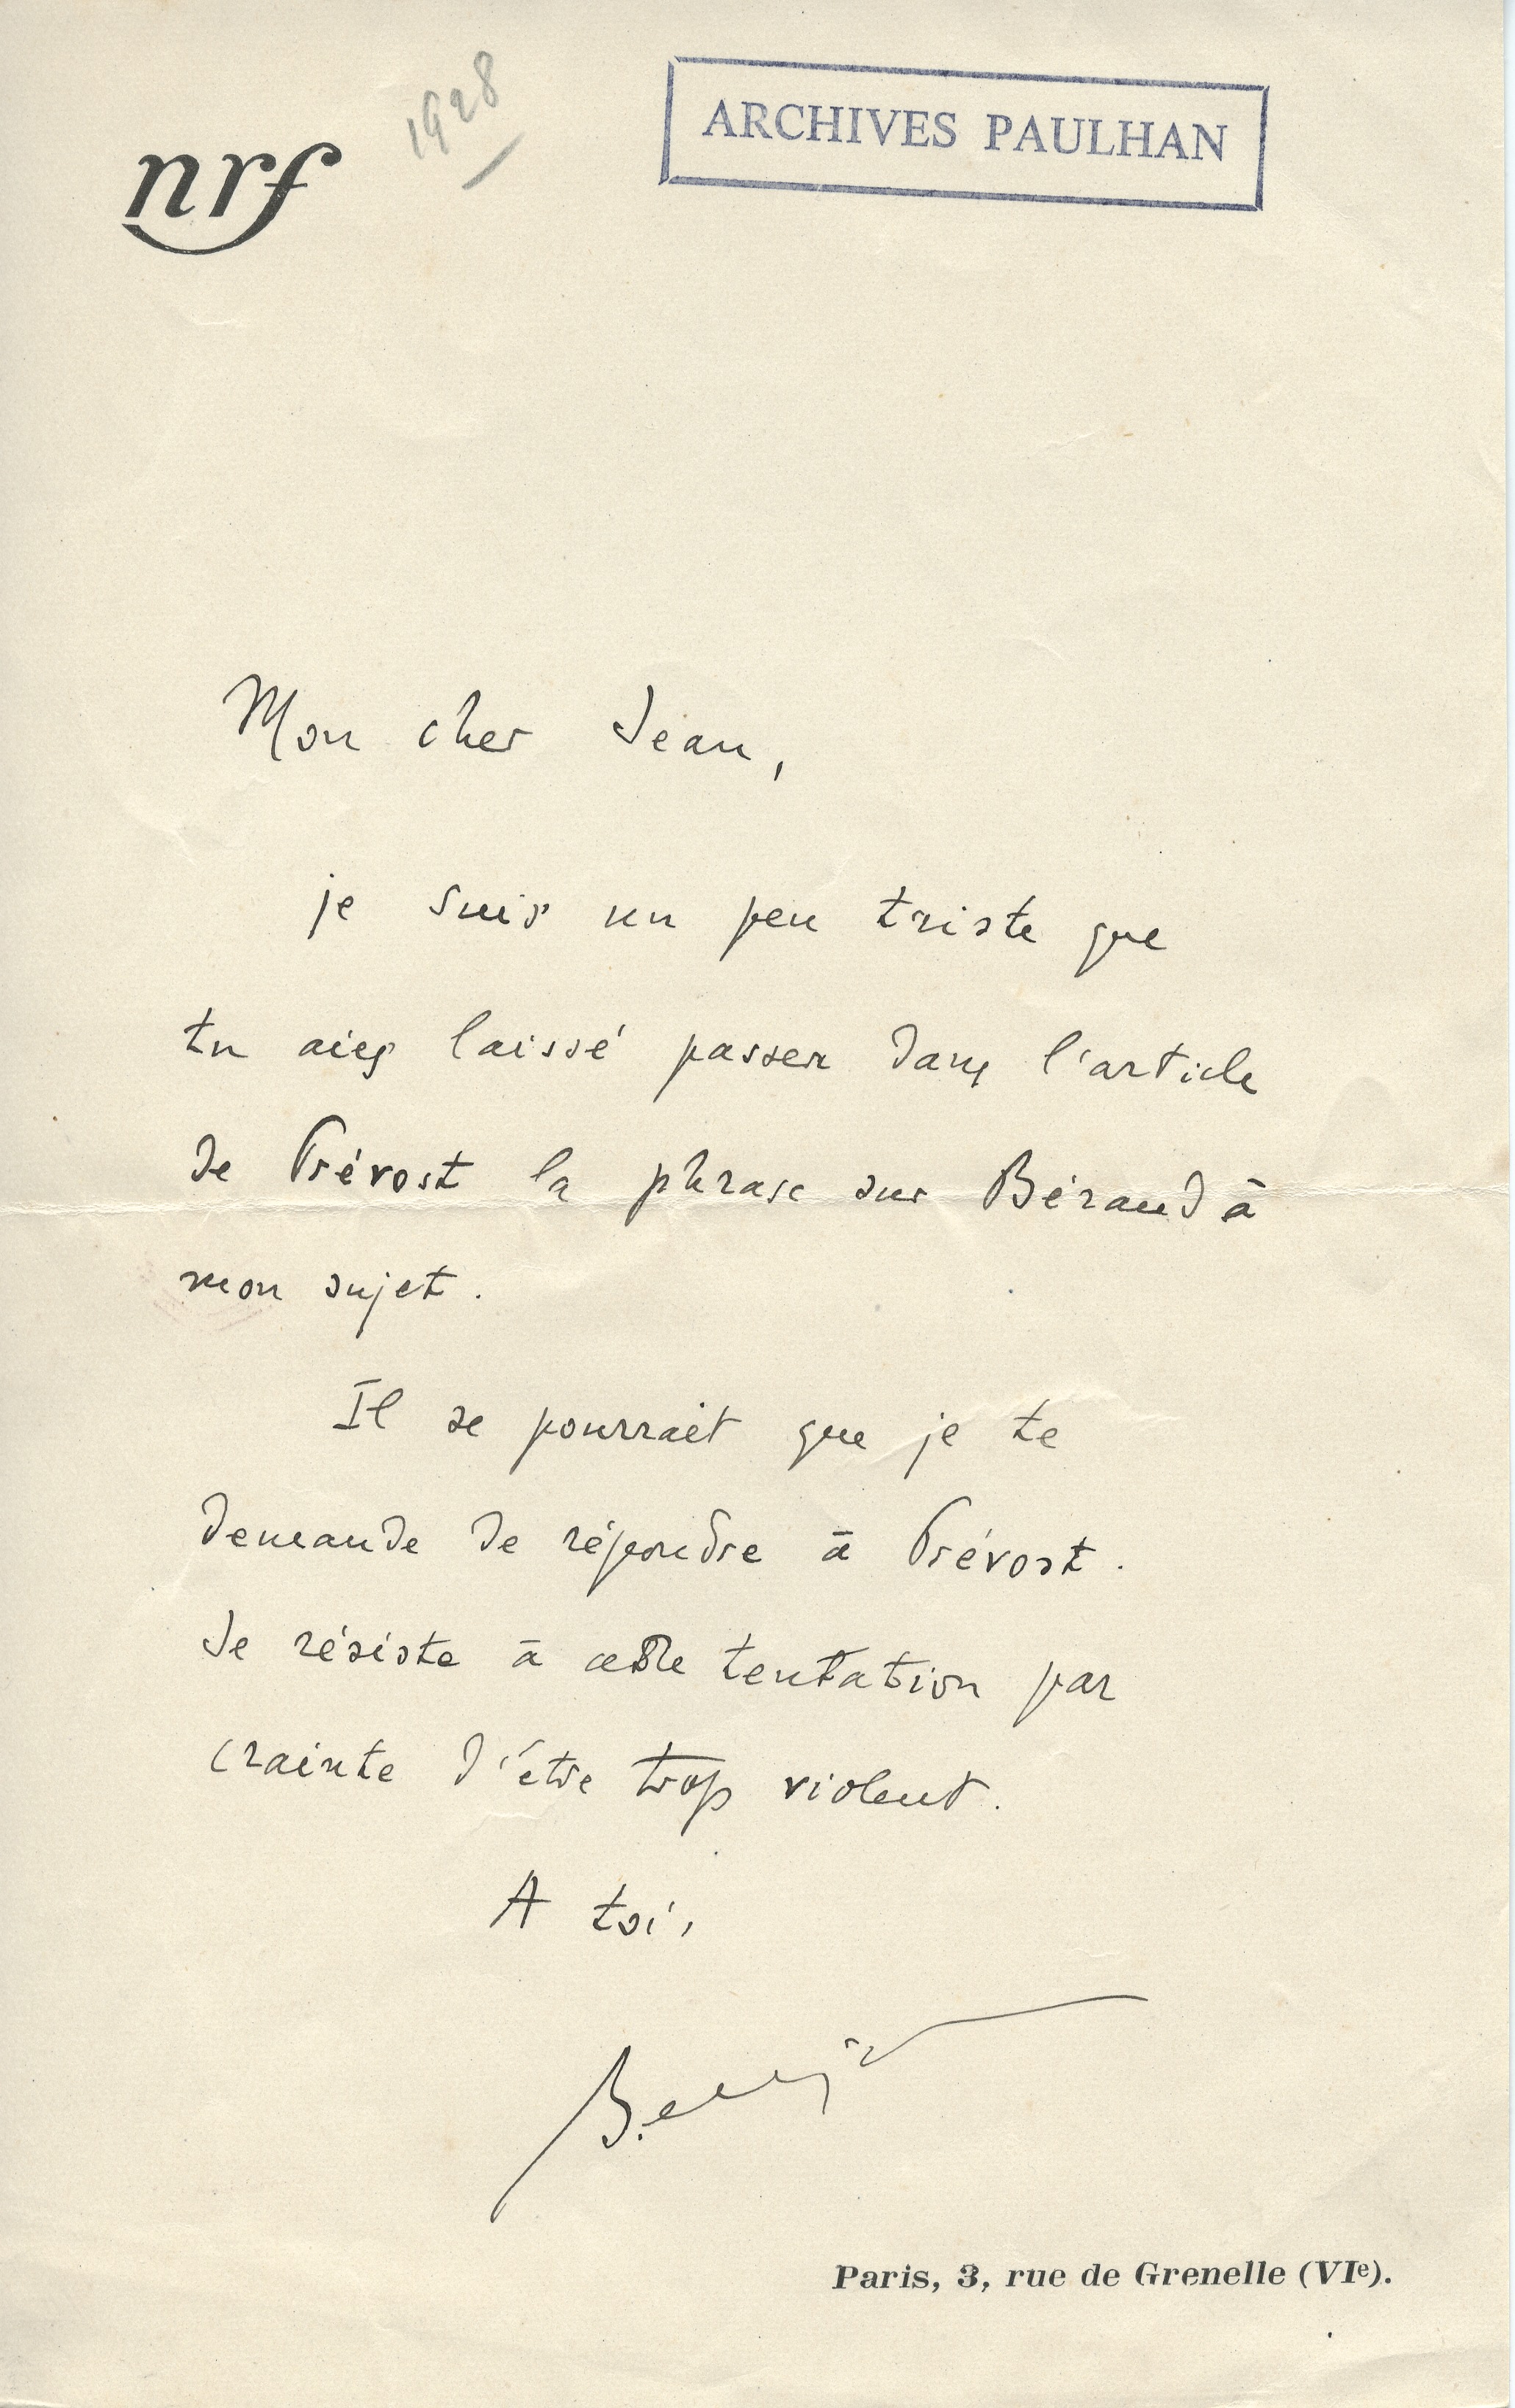 nrf
1928
ARCHIVES PAULHAN
Mon cher Jean,
je suis un peu triste que
tu aies laissé passer dans l'article
de Prévost la phrase sur Béraud à
mon sujet.
Il se pourrait que je te
demande de répondre à Prévost.
Je résiste à cette tentation par
crainte d'être trop violent.
A toi,
Paris, 3, rue de Grenelle (VIe).